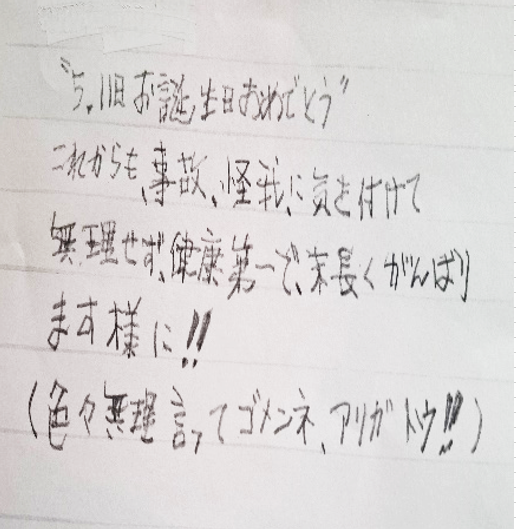 "5.11日お誕生日おめでとう"
これからも、事故、怪我に気を付けて
無理せず、健康第一で、末長くがんばり
ます様に!!
(色々無理言ってゴメンネ、アリガトウ!!)